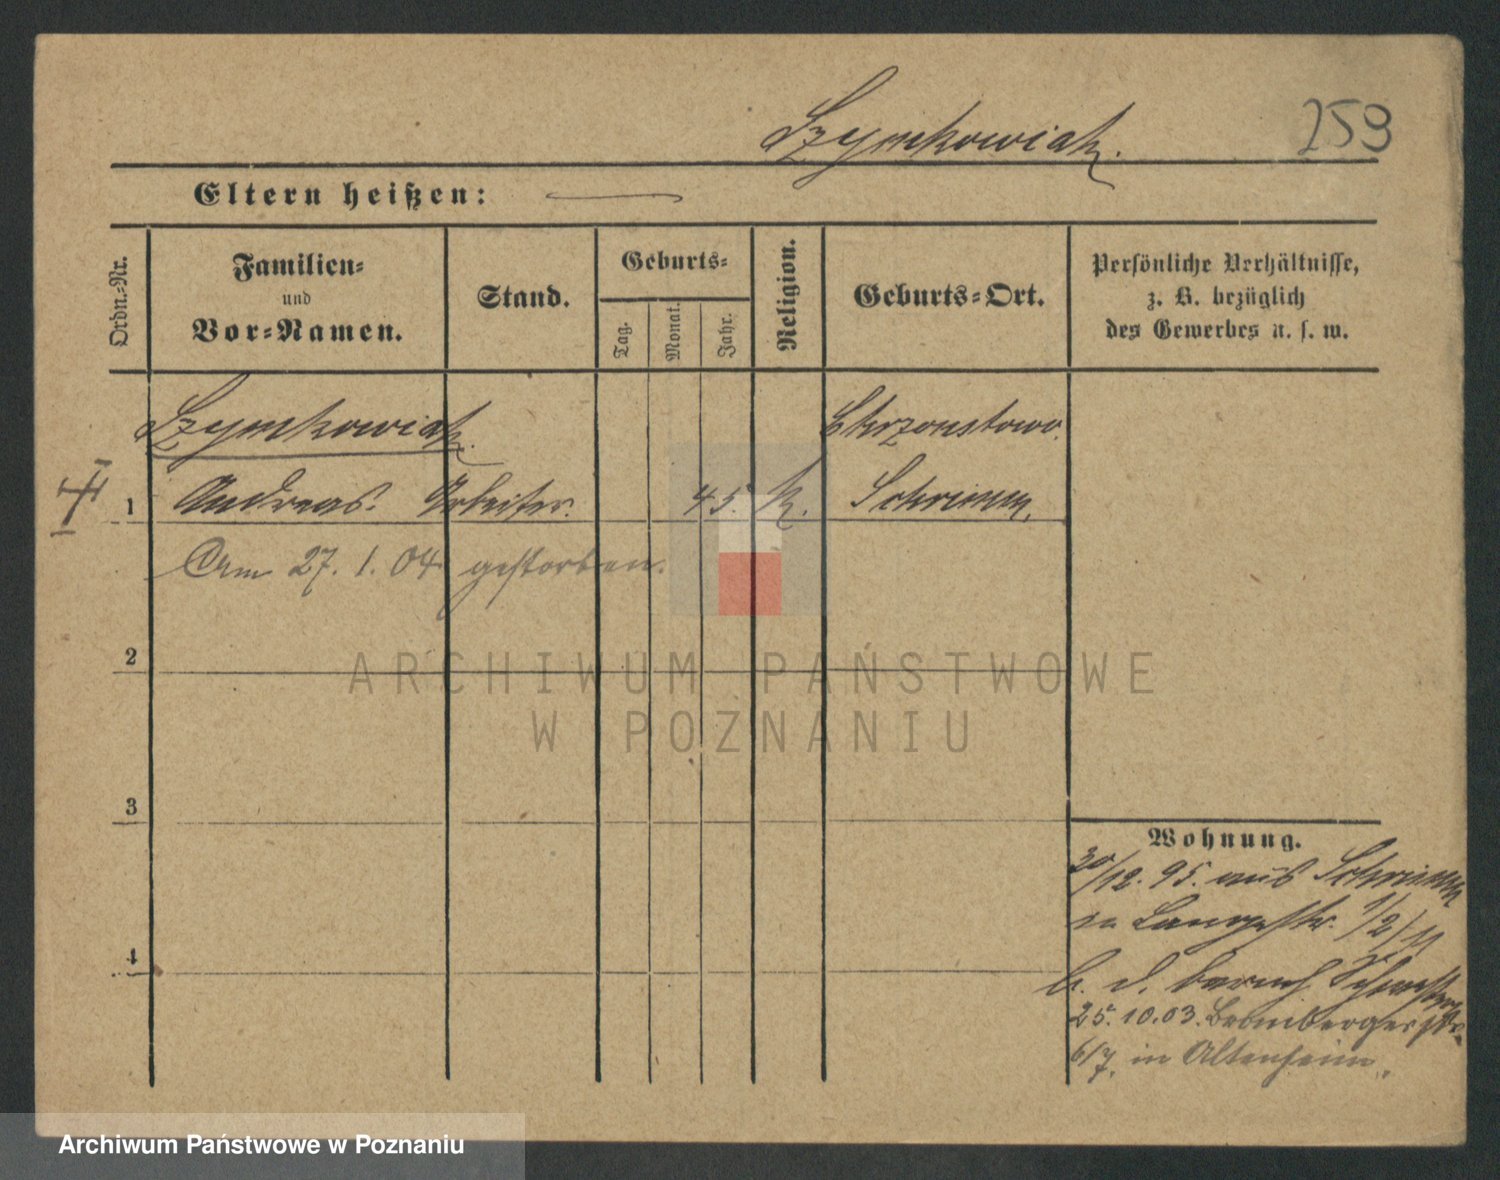 Szymkowiak.
259
Eltern heißen:
Ordn.-Nr.
Familien-
und
Vor-Namen.
Stand.
Geburts-
Tag.
Monat.
Jahr.
Religion.
Geburts-Ort.
Persönliche Verhältnisse,
z. B. bezüglich
des Gewerbes u. s. w.
Szymkowiak
Chrzonstowo.
1 Andreas. Arbeiter. 45. k. Schrimm.
Am 27. 1. 04 gestorben.
2
ARCHIWUM PAŃSTWOWE
W POZNANIU
3
Wohnung.
30/12. 95. aus Schrimm
in Langestr. 1/2/11
b. d. barmh. Schwestern
25. 10. 03. Brombergerstr.
6/7. in Altenheim.
4
Archiwum Państwowe w Poznaniu